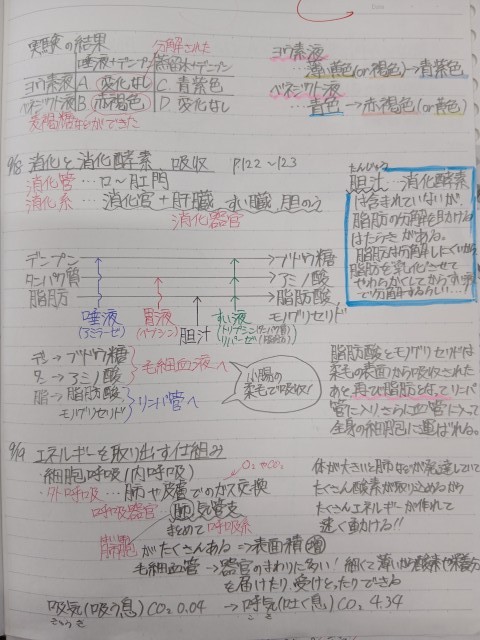 実験の結果
分解された
唾液+デンプン 蒸留水+デンプン
ヨウ素液 A 変化なし C 青紫色
ベネジクト液 B 赤褐色 D 変化なし
麦芽糖などができた
ヨウ素液
…薄い黄色(or褐色)→青紫色
ベネジクト液
…青色→赤褐色(or黄色)
9/8 消化と消化酵素、吸収 P122~123
消化管…口~肛門
消化系…消化管+肝臓 すい臓 胆のう
消化器官
たんじゅう
胆汁…消化酵素
は含まれていないが、
脂肪の分解を助ける
はたらきがある。
脂肪は分解しにくいから
脂肪を乳化させて
やわらかくしてからすい液
で分解するらしい…!
デンプン → ブドウ糖
タンパク質 → アミノ酸
脂肪 → 脂肪酸
モノグリセリド
唾液 胃液 胆汁 すい液
(アミラーゼ) (ペプシン) (トリプシン(タンパク質)
リパーゼ(脂肪))
デ→ブドウ糖
タ→アミノ酸 毛細血液へ
脂→脂肪酸
モノグリセリド リンパ管へ
小腸の
柔毛で吸収!
脂肪酸とモノグリセリドは
柔毛の表面から吸収された
あと再び脂肪となってリンパ
管に入りさらに血管に入って
全身の細胞に運ばれる。
9/9 エネルギーを取り出す仕組み
・細胞呼吸(内呼吸)
O₂やCO₂
・外呼吸…肺や皮膚でのガス交換
呼吸器官…肺,気管支
まとめて呼吸系
体が大きいと肺などが発達していて
たくさん酸素が取り込めるから
たくさんエネルギーが作れて
速く動ける!!
肺胞がたくさんある⇒表面積増
毛細血管→器官のまわりに多い!細くて薄いから酸素や栄養分
を届けたり、受けとったりできる
吸気(吸う息)CO₂ 0.04 → 呼気(吐く息)CO₂ 4.34
きゅうき こき